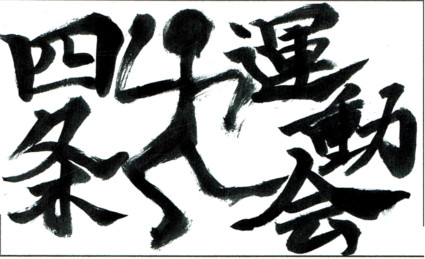 四条
運動会